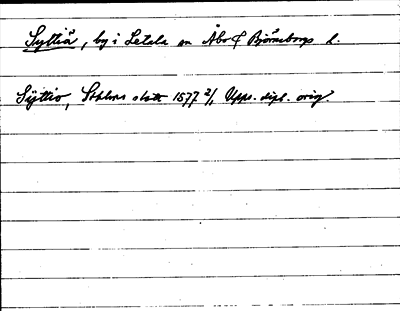 Syttiä, by i Letala sn Åbo & Björneborgs l.
Syttio, Sthlms slott 1577 2/1 Upps. dipl. orig.